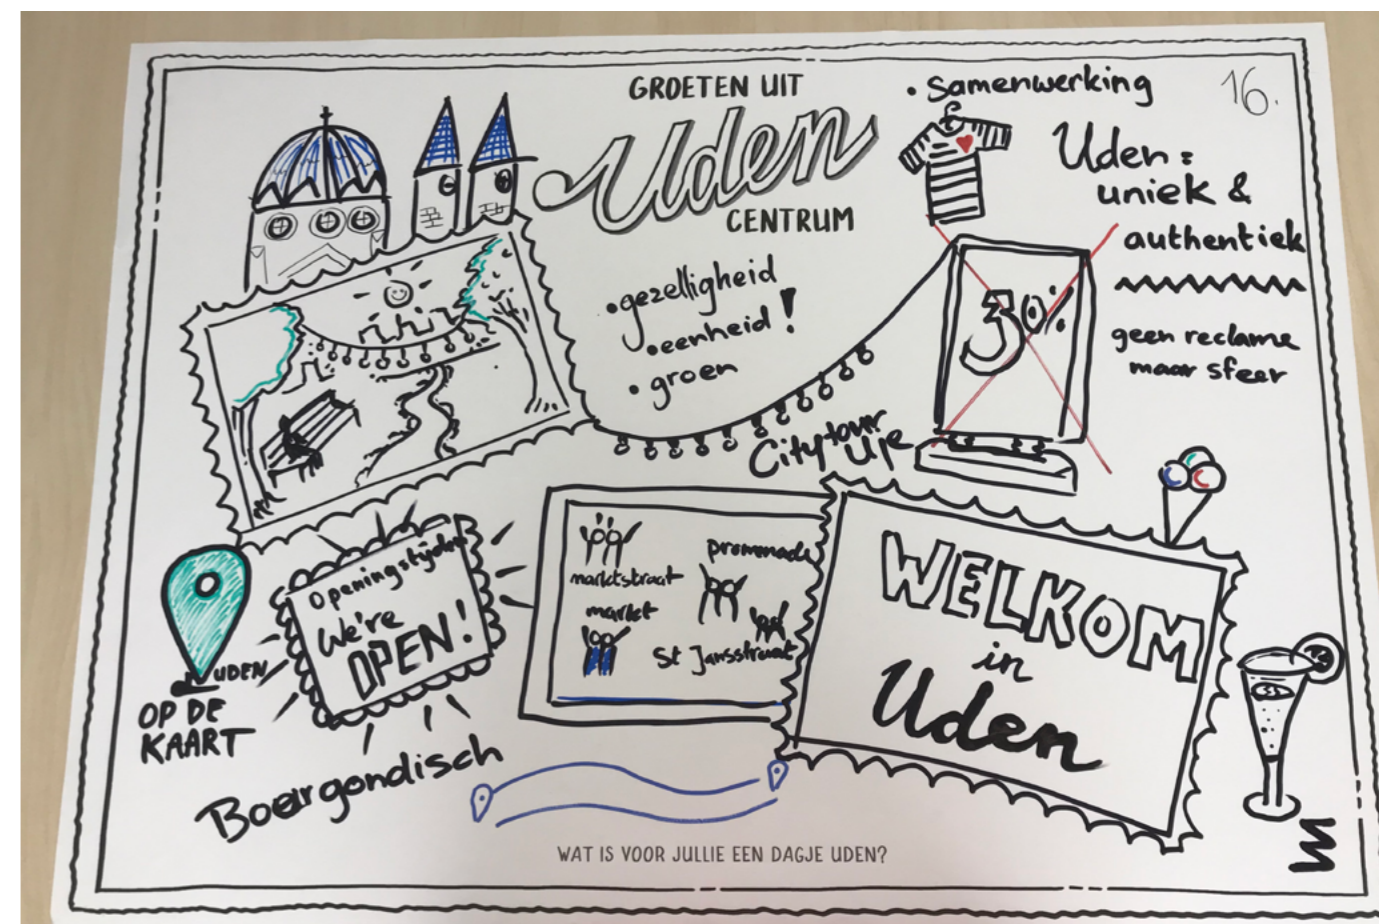 GROETEN UIT
Uden
CENTRUM
• Samenwerking
16.
Uden =
uniek &
authentiek
geen reclame
maar sfeer
• gezelligheid
• eenheid !
• groen
30%
Citytour
Openingstijden
We're
OPEN!
UDEN
OP DE
KAART
Boergondisch
marktstraat
markt
promenade
St Jansstraat
WELKOM
in
Uden
WAT IS VOOR JULLIE EEN DAGJE UDEN?